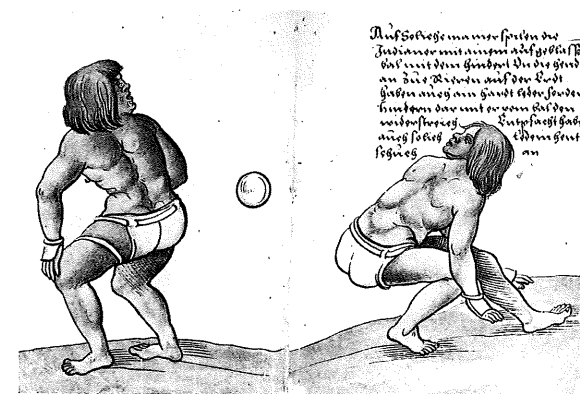 Auf Soliche manier spilen die
Indianer mit ainem auf geblass
bal mit dem hindert On die hend
an Zue Rieren auf der Erdt
haben auch ain hardt leder fordem
hindern dar mit er vom bal den
widerstreich Entpfacht hab
auch solich ledrin hent
schuch an